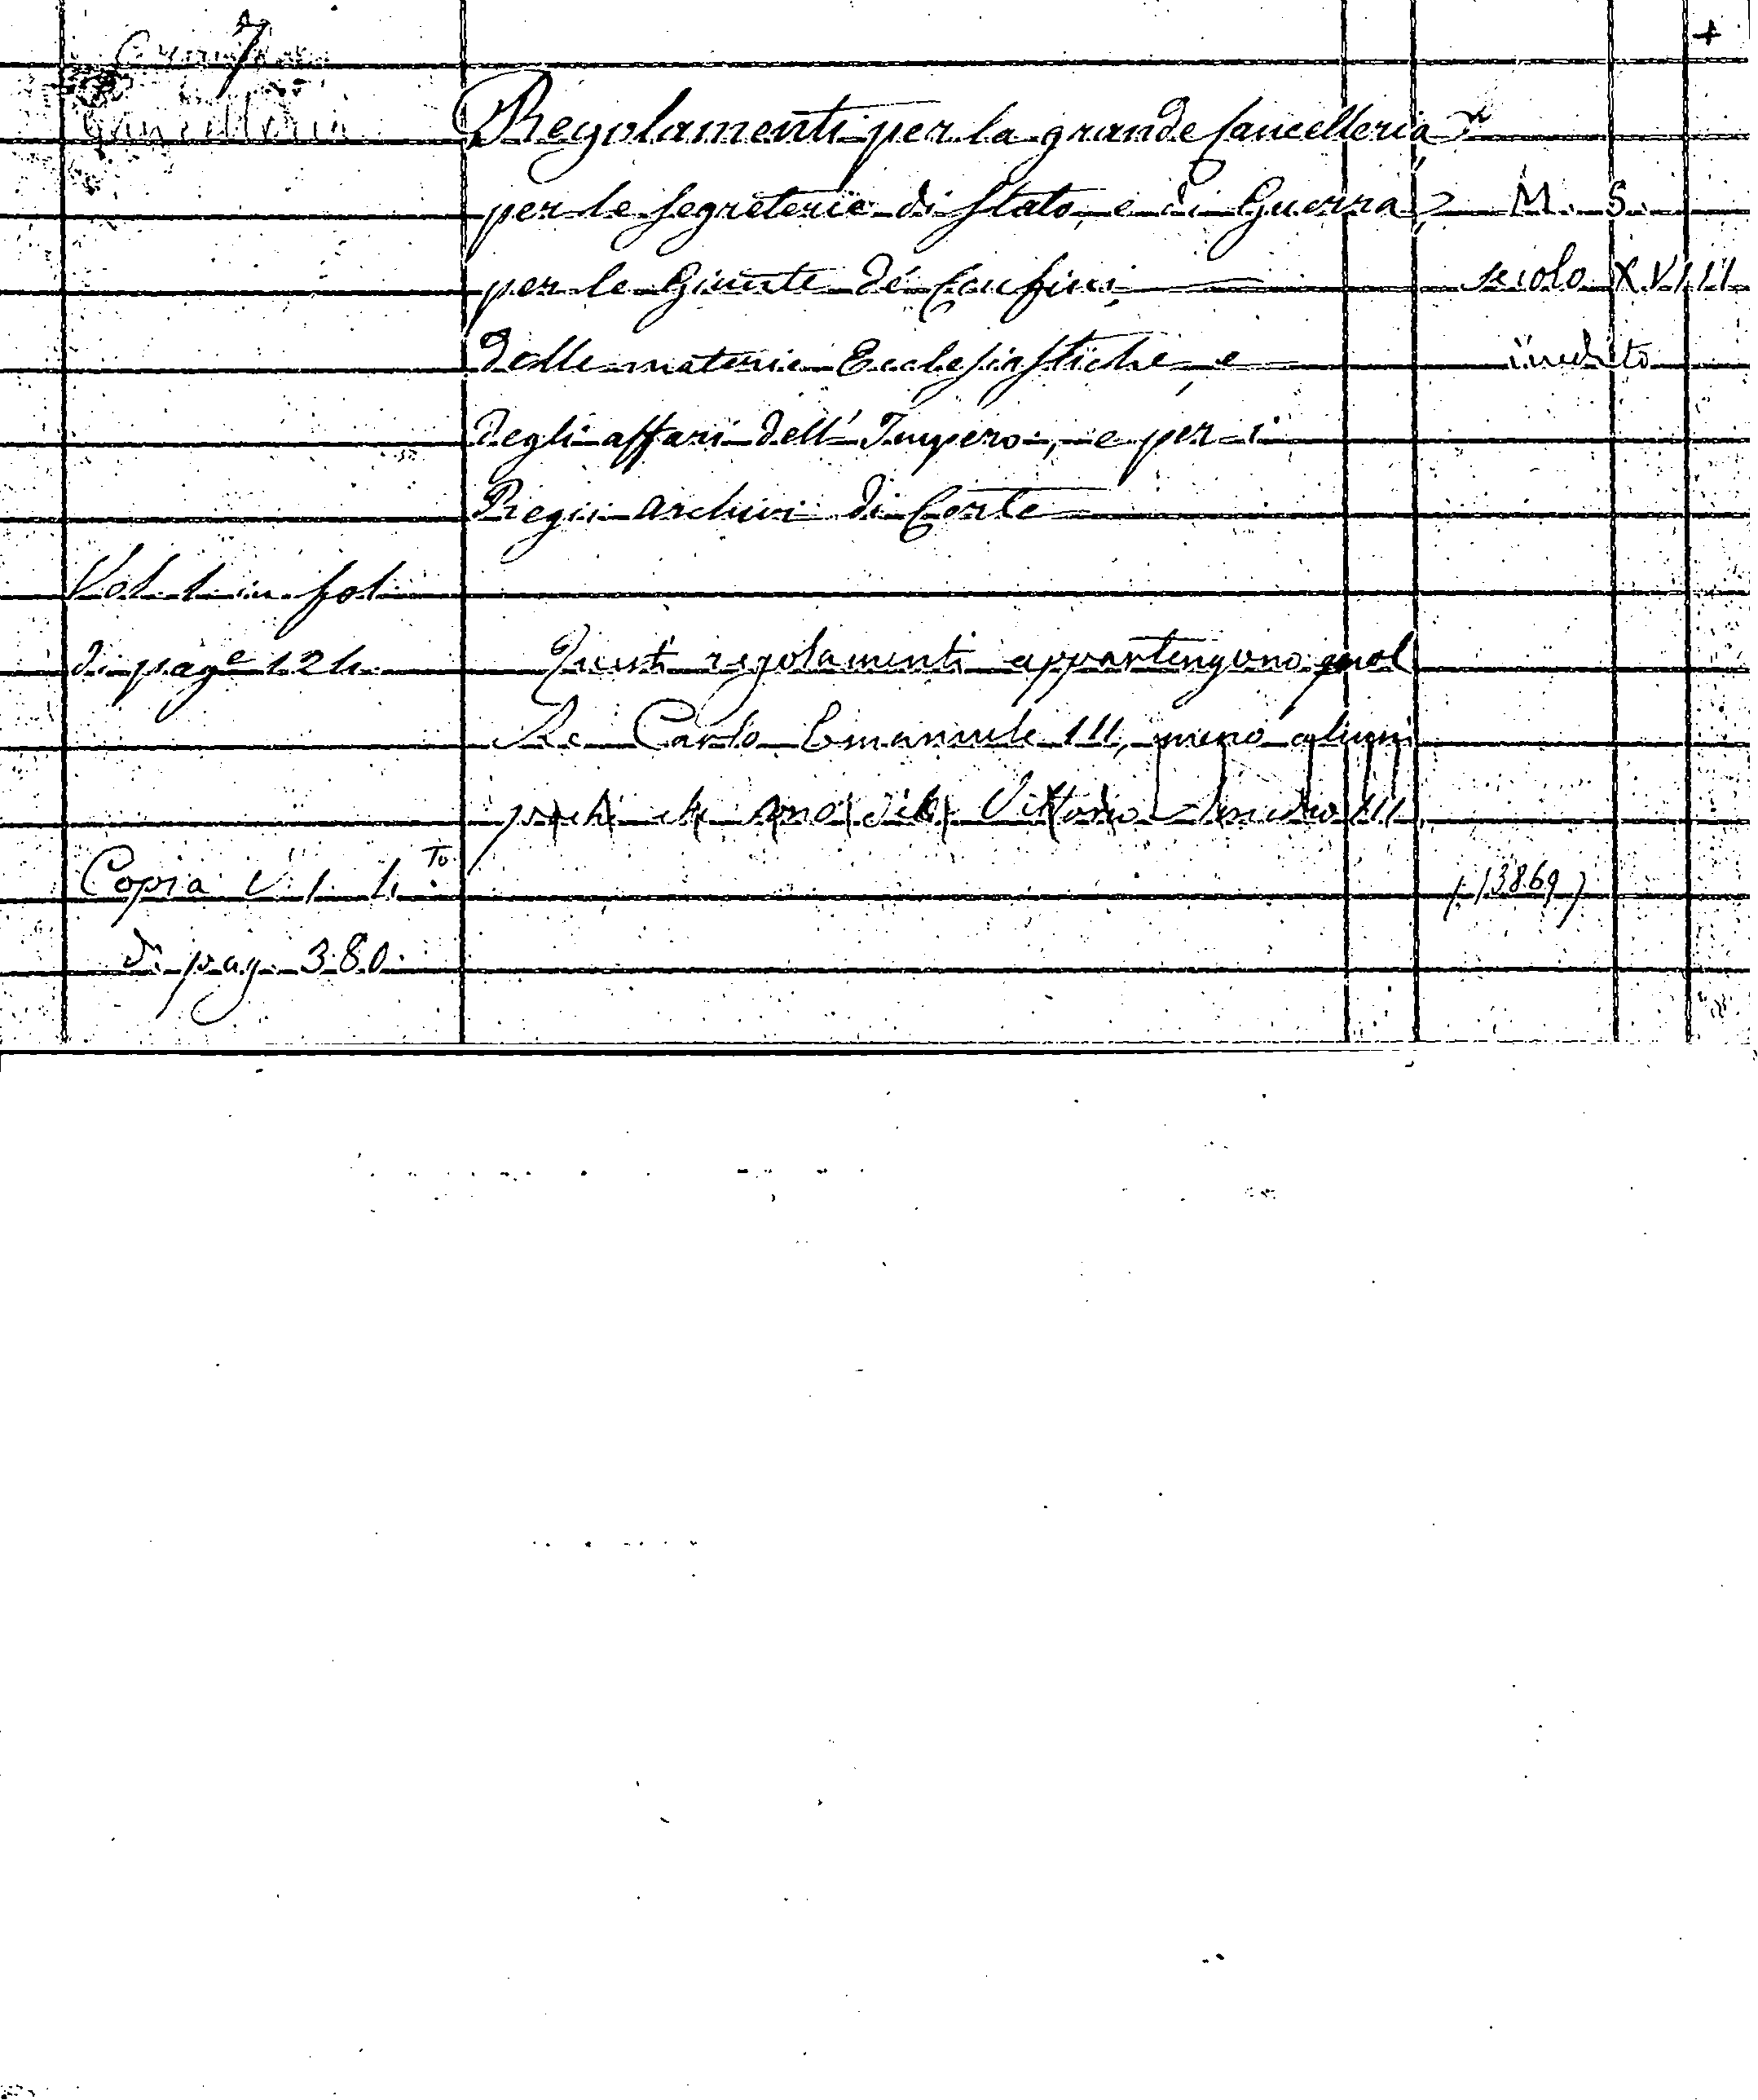 7
+
Cancelleria
Regolamenti per la grande Cancelleria
per le Segreterie di Stato, e di Guerra
M. S.
per le Giunte de' Confini
secolo XVIII
delle materie Ecclesiastiche e
inedito
degli affari dell' Impero, e per i
Regii archivi di Corte
Vol. 1 in fol.
di page 124.
Questi regolamenti appartengono al
Re Carlo Emanuele III, meno alcuni
pochi che sono del Vittorio Amedeo III
Copia V. 1. 4.to
(13869)
di pag. 380.